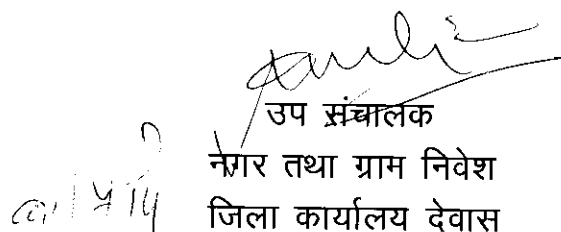 उप संचालक
नगर तथा ग्राम निवेश
जिला कार्यालय देवास